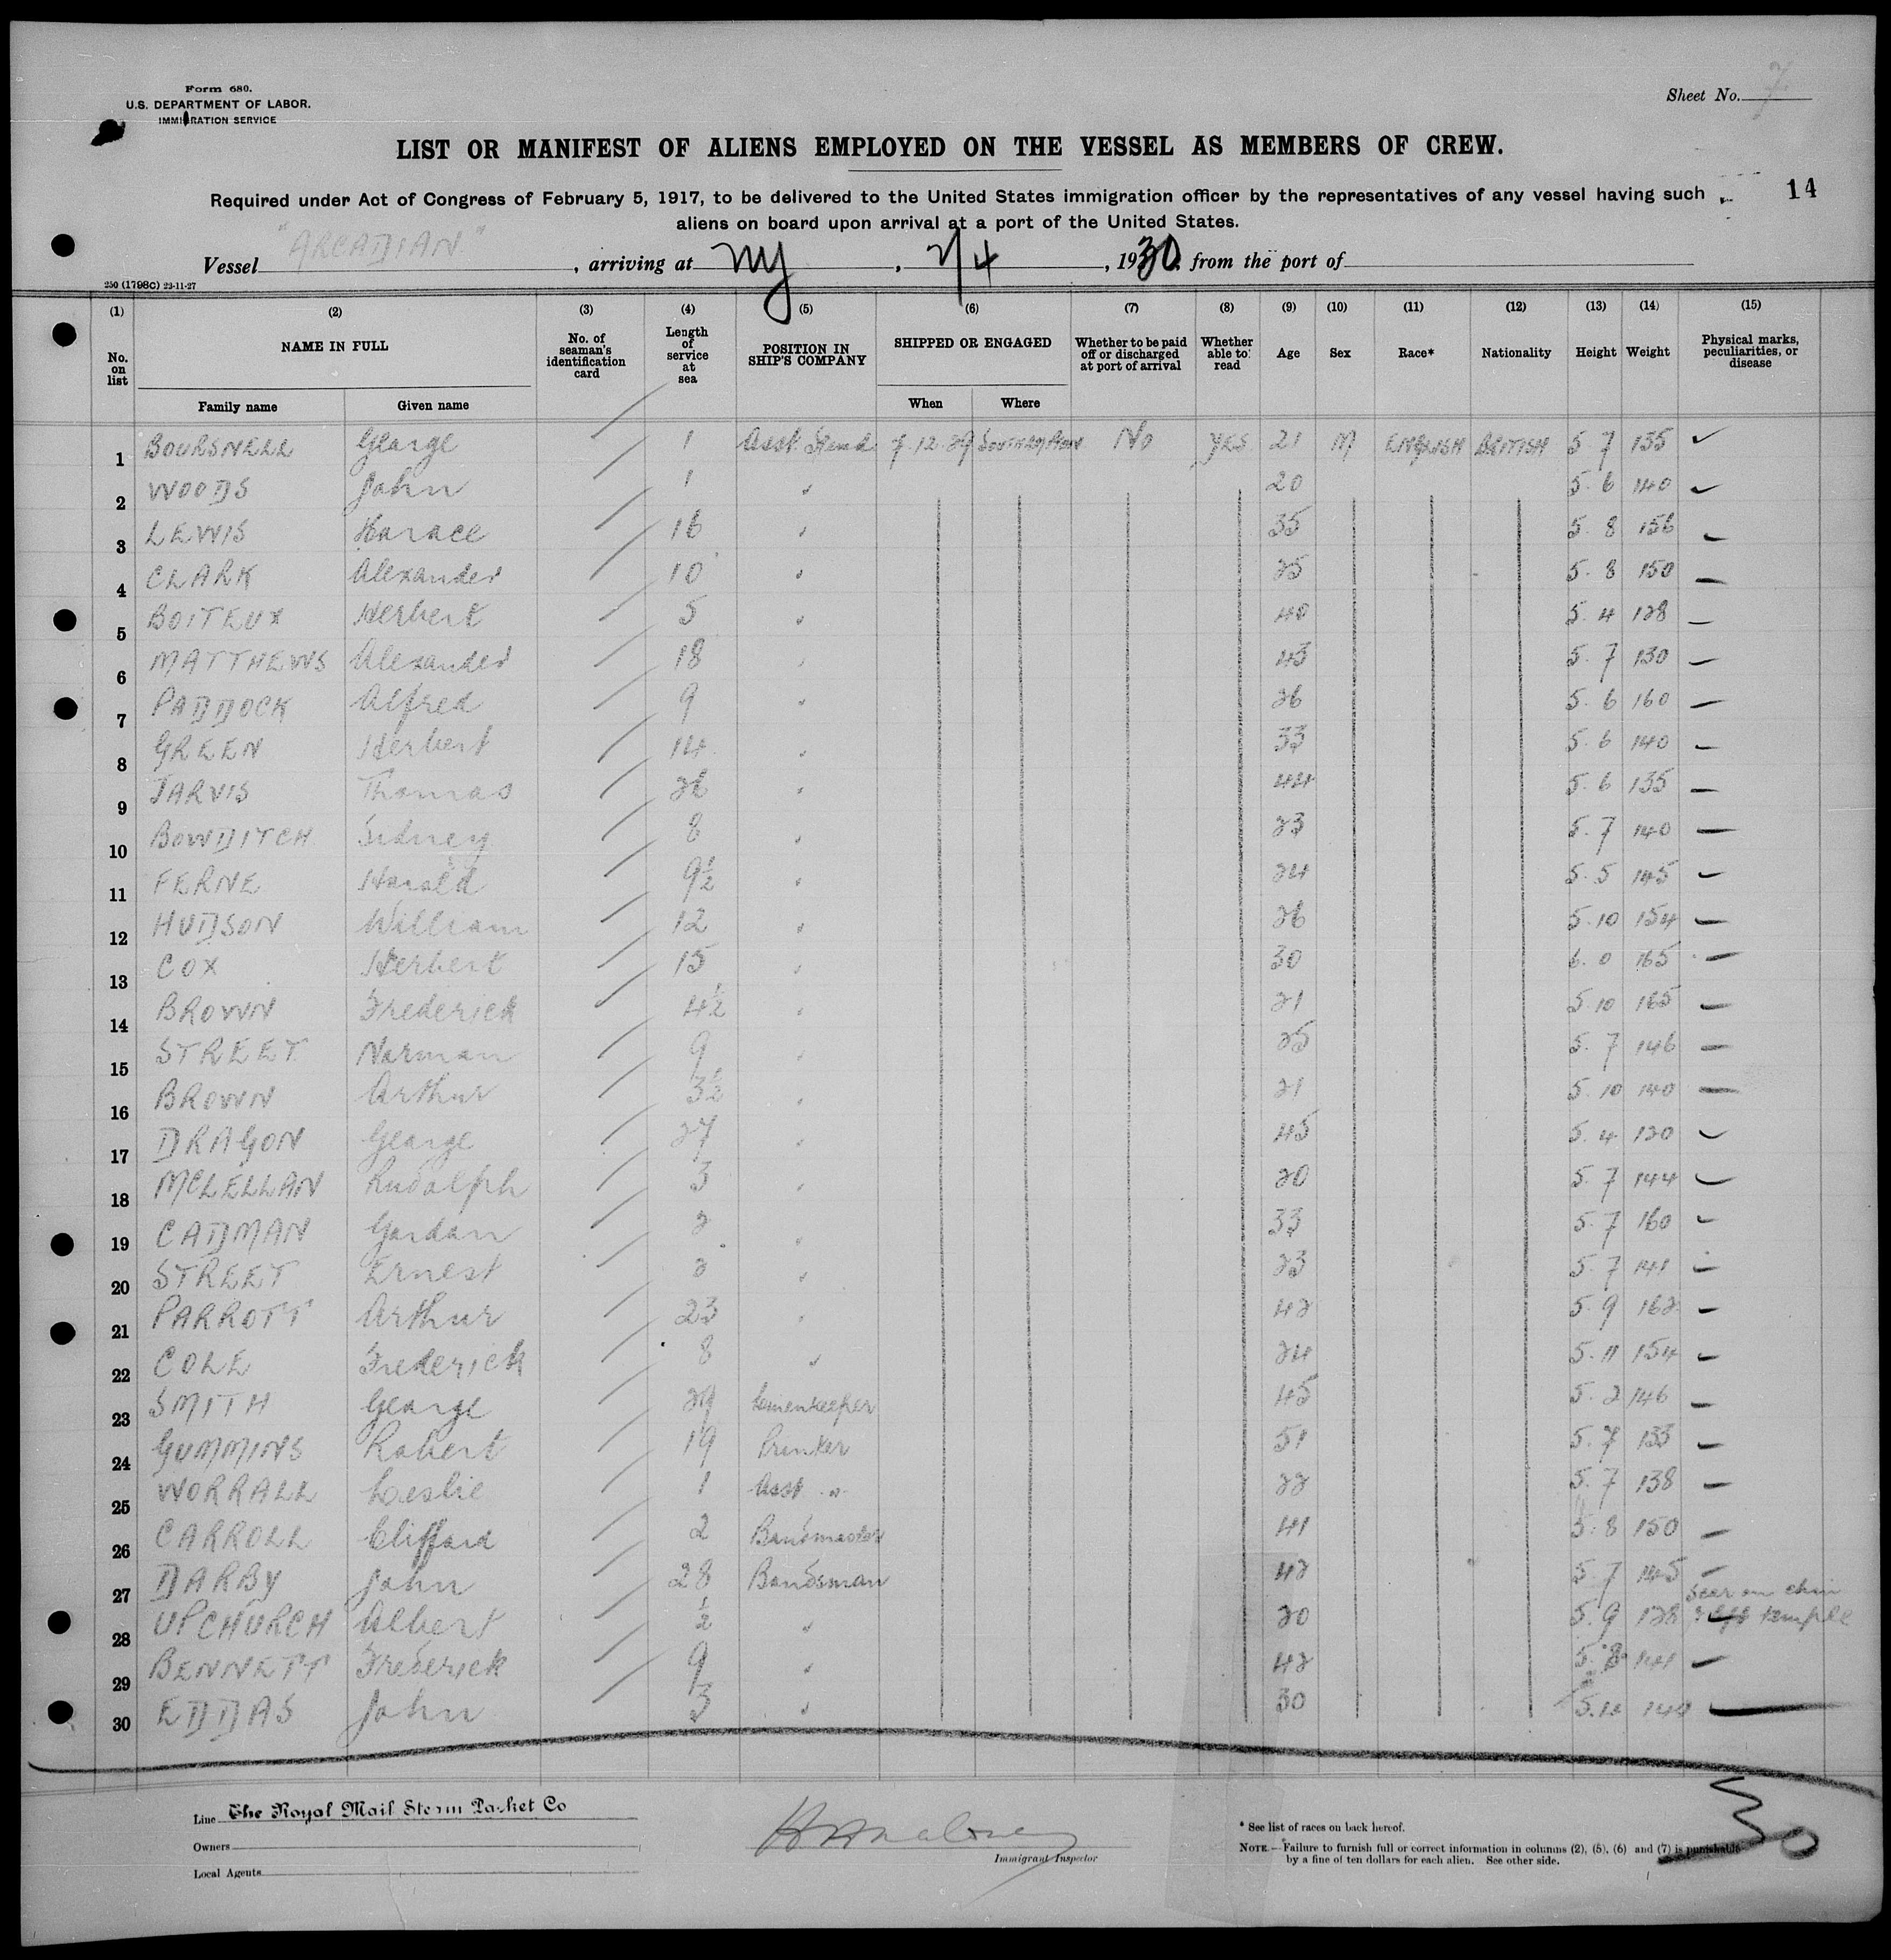 Form 680.
U.S. DEPARTMENT OF LABOR.
IMMIGRATION SERVICE
Sheet No. 7
LIST OR MANIFEST OF ALIENS EMPLOYED ON THE VESSEL AS MEMBERS OF CREW.
Required under Act of Congress of February 5, 1917, to be delivered to the United States immigration officer by the representatives of any vessel having such
aliens on board upon arrival at a port of the United States.
14
Vessel "ARCADIAN", arriving at NY, 2/4, 1930, from the port of
250 (1798C) 23-11-27
(1) (2) (3) (4) (5) (6) (7) (8) (9) (10) (11) (12) (13) (14) (15)
No. on list NAME IN FULL No. of seaman's identification card Length of service at sea POSITION IN SHIP'S COMPANY SHIPPED OR ENGAGED Whether to be paid off or discharged at port of arrival Whether able to read Age Sex Race* Nationality Height Weight Physical marks, peculiarities, or disease
Family name Given name When Where
1 BOURSNELL George 1 Asst. Steward 7.12.29 Southampton No YES 21 M ENGLISH BRITISH 5 7 135
2 WOODS John 1 " 20 5.6 140
3 LEWIS Horace 16 " 35 5.8 156
4 CLARK Alexander 10 " 25 5.8 150
5 BOITEUX Herbert 5 " 40 5.4 128
6 MATTHEWS Alexander 18 " 43 5.7 130
7 PADDOCK Alfred 9 " 26 5.6 160
8 GREEN Herbert 14 " 33 5.6 140
9 JARVIS Thomas 26 " 44 5.6 135
10 BOWDITCH Sidney 8 " 23 5.7 140
11 FERNE Harold 9½ " 24 5.5 145
12 HUDSON William 12 " 26 5.10 154
13 COX Herbert 15 " 30 6.0 165
14 BROWN Frederick 4½ " 21 5.10 165
15 STREET Norman 9 " 25 5.7 146
16 BROWN Arthur 3½ " 21 5.10 140
17 DRAGON George 27 " 45 5.4 120
18 MCLELLAN Rudolph 3 " 20 5.7 144
19 CADMAN Gordon 2 " 33 5.7 160
20 STREET Ernest 2 " 23 5.7 141
21 PARROTT Arthur 23 " 42 5.9 162
22 COLE Frederick 8 " 24 5.11 154
23 SMITH George 29 Linenkeeper 45 5.2 146
24 GUMMINS Robert 19 Printer 51 5.7 133
25 WORRALL Leslie 1 Asst. " 22 5.7 138
26 CARROLL Clifford 2 Bandmaster 41 5.8 150
27 DARBY John 28 Bandsman 42 5.7 145
28 UPCHURCH Albert ½ " 20 5.9 128 Scar on chin & left temple
29 BENNETT Frederick 9 " 42 5.8 141
30 EDDAS John 3 " 30 5.10 140
Line The Royal Mail Steam Packet Co
Owners
Local Agents
Immigrant Inspector
* See list of races on back hereof.
NOTE.—Failure to furnish full or correct information in columns (2), (5), (6) and (7) is punishable
by a fine of ten dollars for each alien. See other side.
30